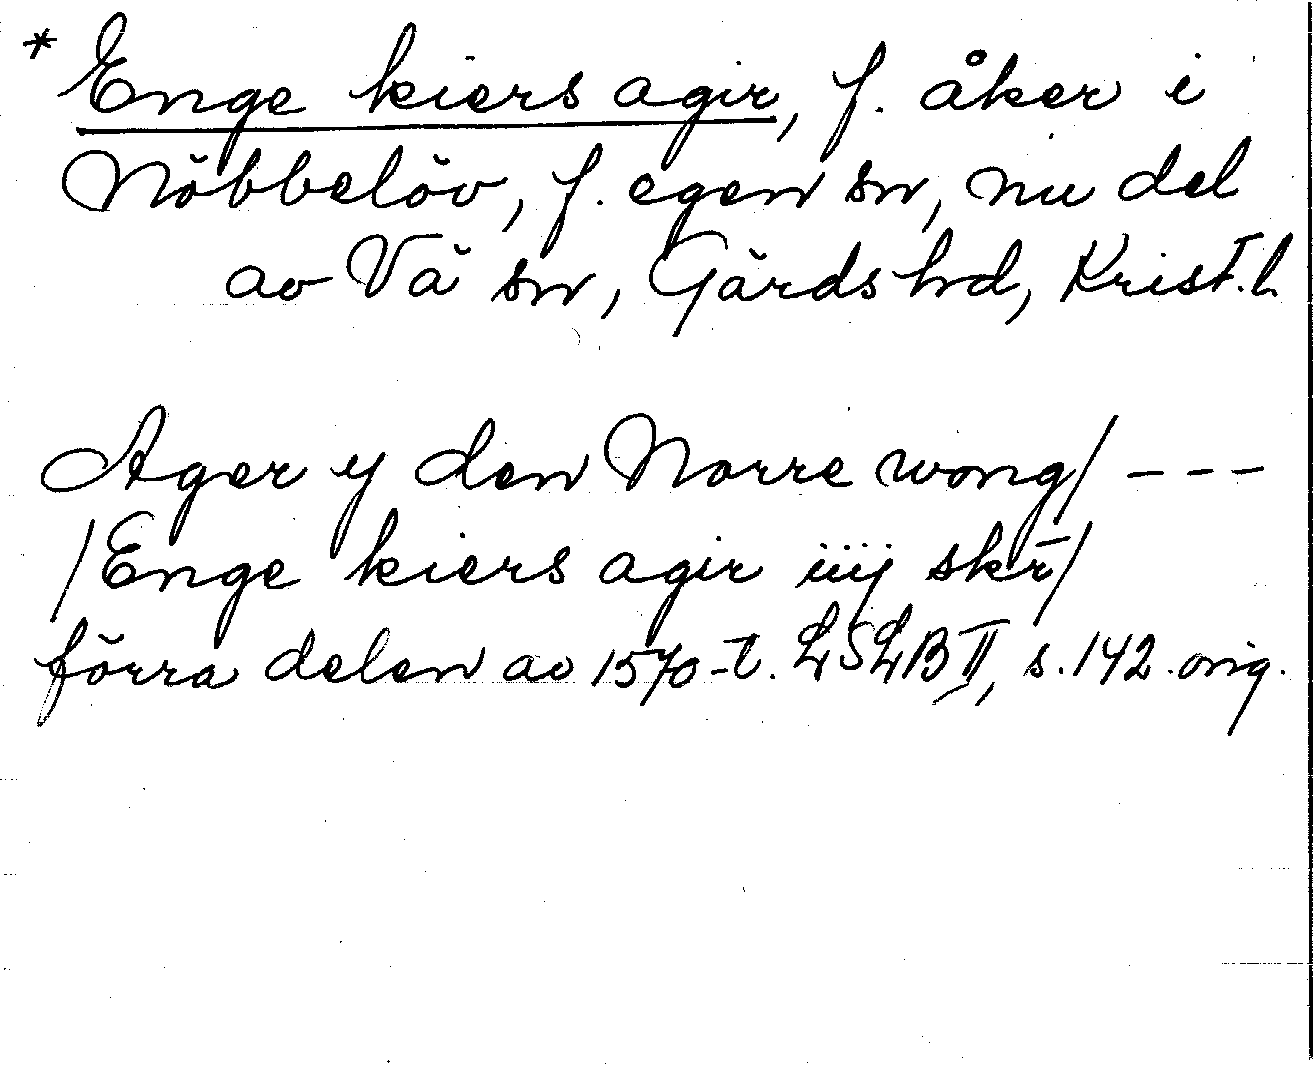 * Enge kiers agir, f. åker i
Nöbbelöv, f. egen sn, nu del
av Vä sn, Gärds hd, Krist. l.
Ager y den Norre wong/ - - -
/Enge kiers agir iiij skr̄/
förra delen av 1570-t. LSLB II, s. 142. orig.